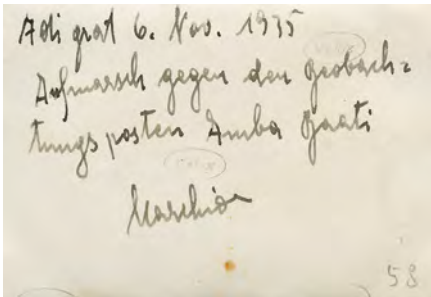 Adi grat 6. Nov. 1935
Aufmarsch gegen den Beobach=
tungsposten Amba Gaati
Maschio
58